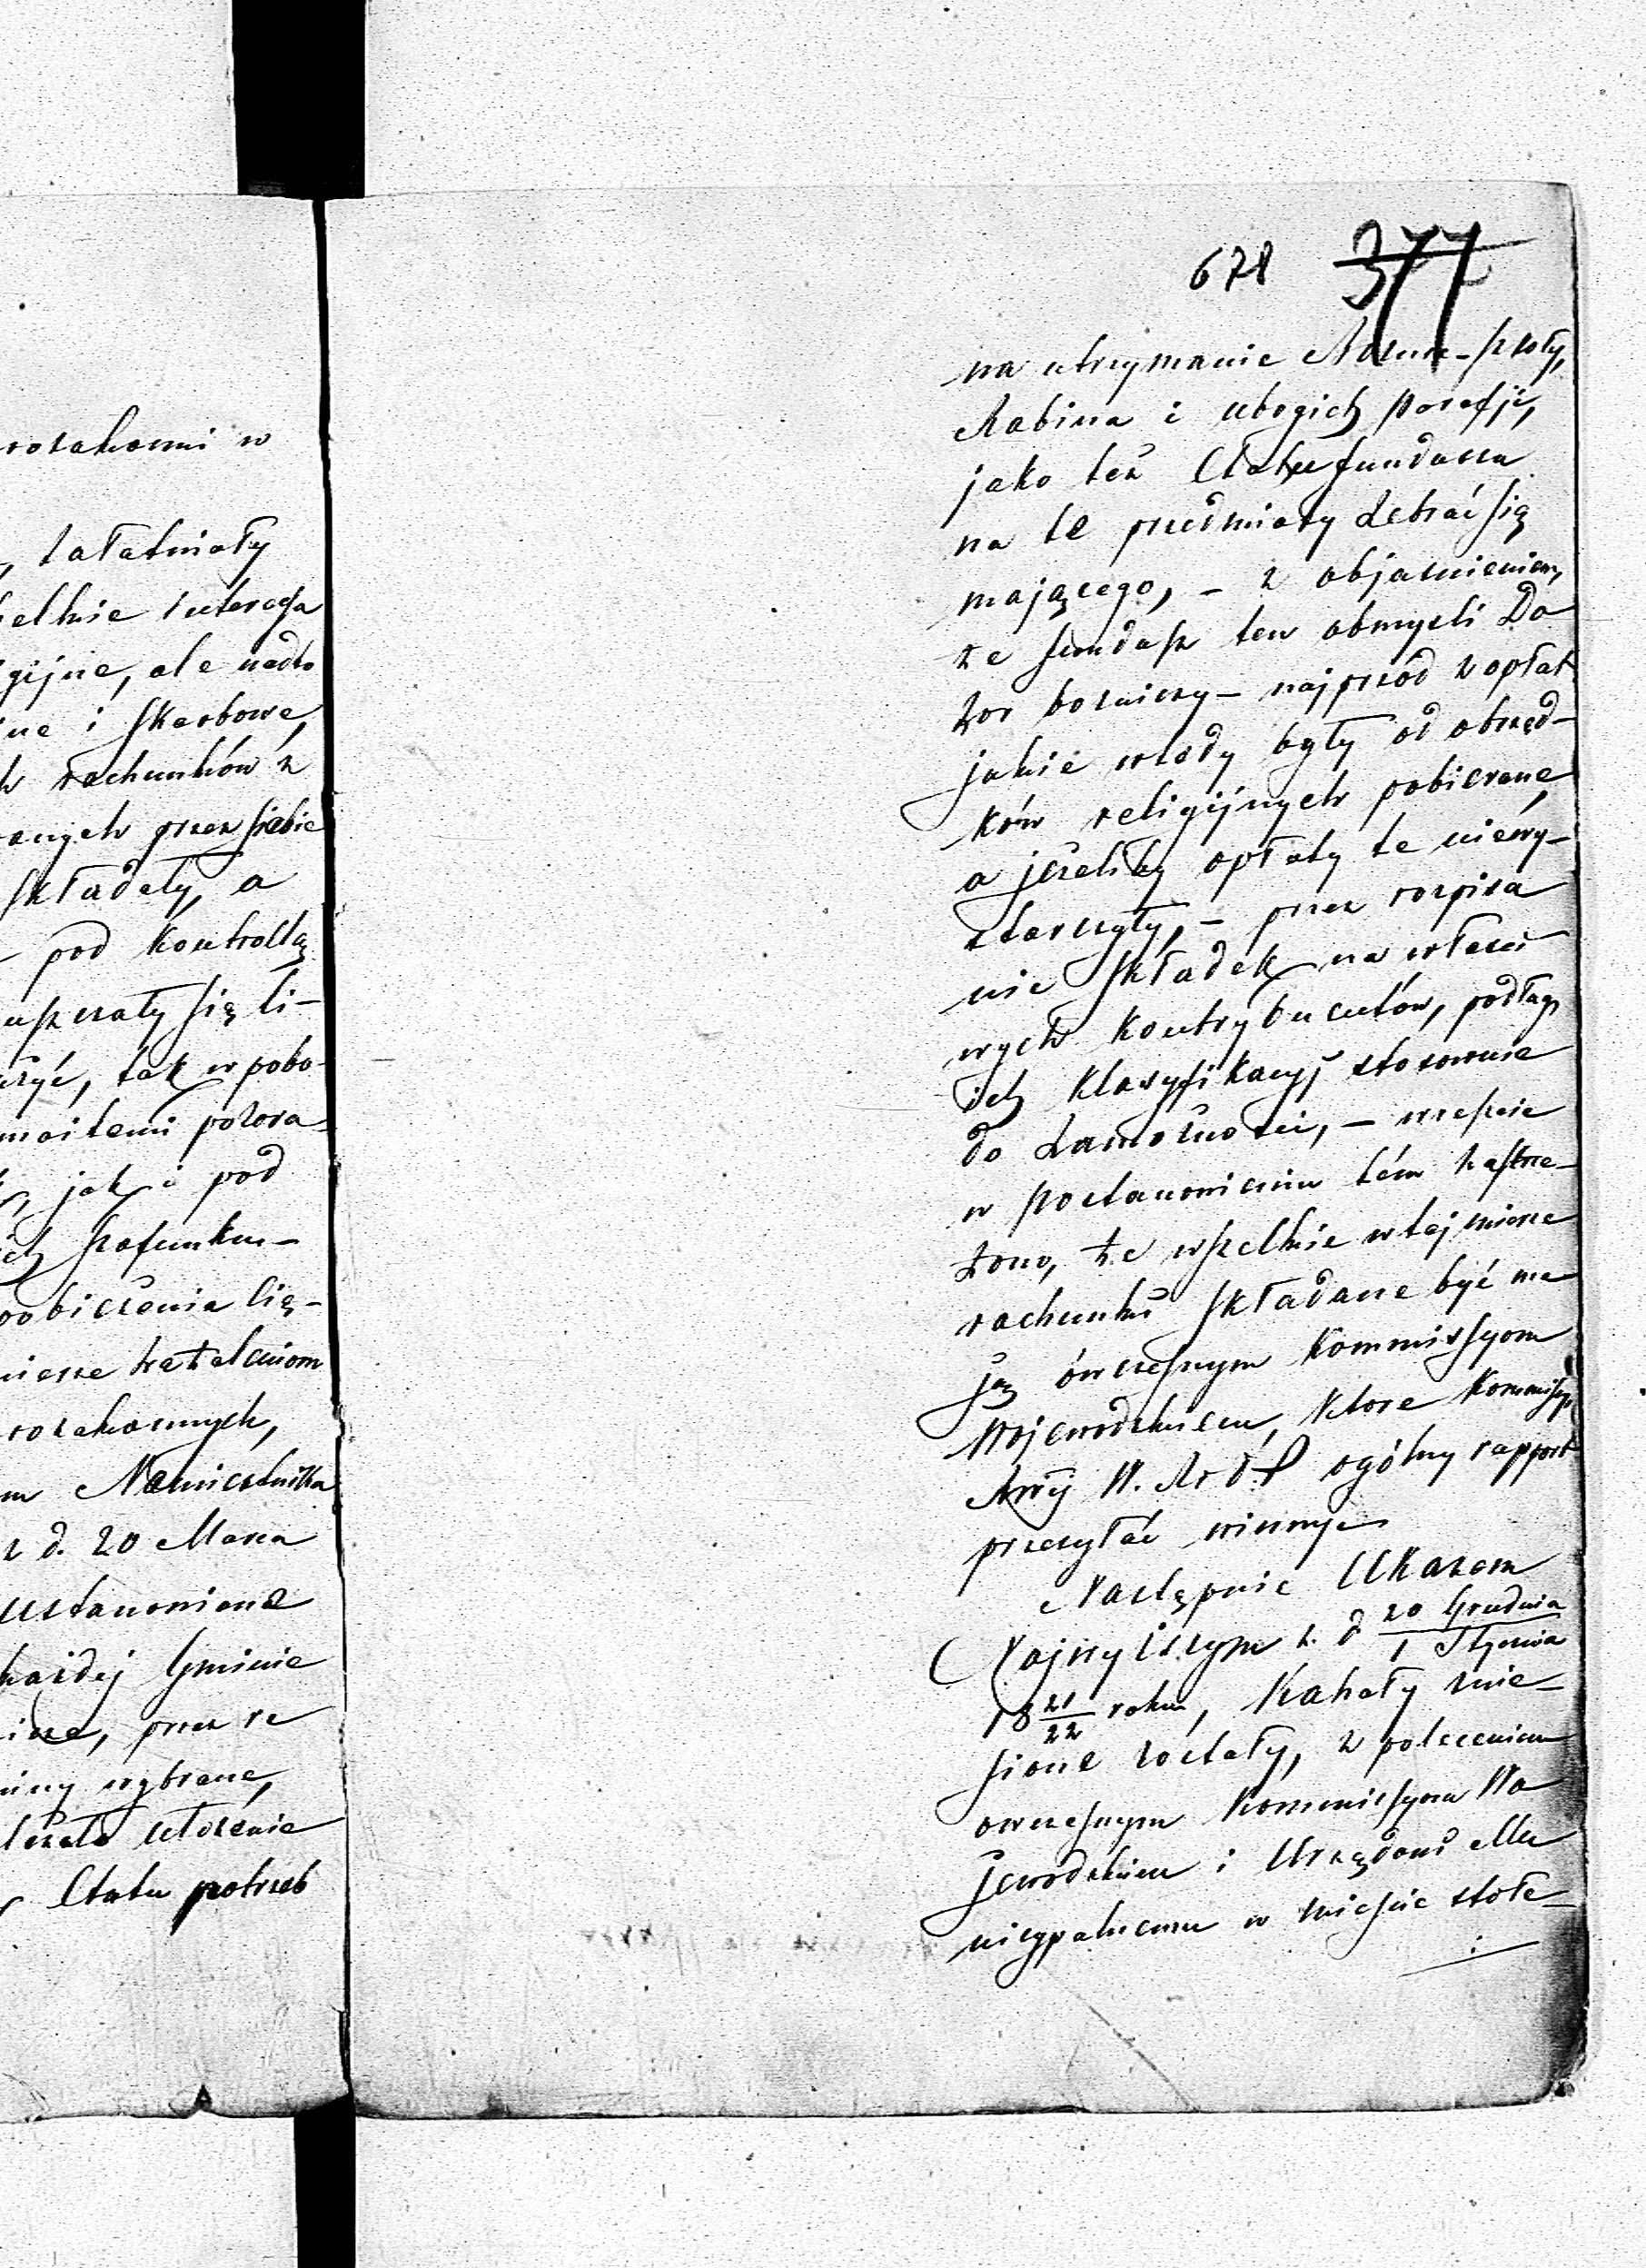 rozakonni w
załatwiały
interessa
gijne, ale nadto
ne i skarbowe,
rachunków z
przez siebie
składały, a
pod kontrollą
się li-
tak w pobo-
pozora-
jak i pod
ich szafunku
rozakonnych,
Namiestnika
z d. 20 Marca
ustanowione
każdej Gminie
przez re
wybrane,
ułożenie
Etatu potrzeb
678 377
na utrzymanie szkoły,
Rabina i ubogich Parafji,
jako też Etatu funduszu
na te przedmioty zebrać się
mającego, – z objasnieniem,
że fundusz ten obmysli Do
zor bozniczy – najprzód z opłat
jakie wtedy były od obrzęd-
ków religijnych pobierane,
a jeżeliby opłaty te niewy-
starczyły, – przez rozpisa
nie składek na właści
wych kontrybuentów, podług
ich klasyfikacyj stosownie
do zamożności, – wreszcie
w postanowieniu tém zastrze-
żono, że wszelkie w tej mierze
rachunki składane być ma
ją ówczesnym Kommissyom
Wojewodzkim, które Kommissyi
Rząd: W. R. i O. P. ogólny rapport
przesyłać winny.
Następnie Ukazem
Najwyższym z. d 20 Grudnia / 1 Stycznia
18 21/22 roku, Kahały znie-
sione zostały, z poleceniem
owczesnym Kommissyom Wo
jewodzkim i Urzędowi Mu
nicypalnemu w mieście stołe-